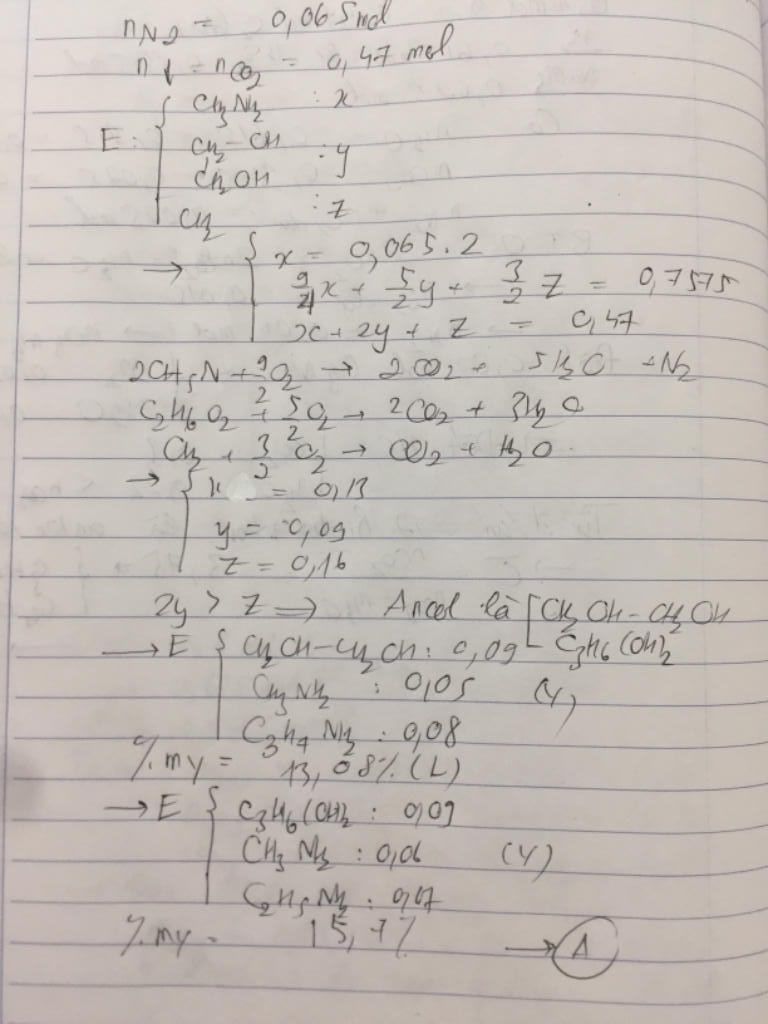 nN2 = 0,065 mol
n↓ = nCO2 = 0,47 mol
E: { CH3NH2 : x
CH2-OH
CH2OH : y
CH2 : z
→ { x = 0,065.2
9/4x + 5/2y + 3/2 z = 0,7575
x + 2y + z = 0,47
2CH5N + 9/2O2 → 2CO2 + 5H2O + N2
C2H6O2 + 5/2O2 → 2CO2 + 3H2O
CH2 + 3/2O2 → CO2 + H2O
→ { x = 0,13
y = 0,09
z = 0,16
2y > z ⟹ Ancol là [ CH2OH-CH2OH
C3H6(OH)2
→ E { CH2OH-CH2OH : 0,09
CH3NH2 : 0,05 (Y)
C3H7NH2 : 0,08
%mY = 13,08% (L)
→ E { C3H6(OH)2 : 0,09
CH3NH2 : 0,06 (Y)
C2H5NH2 : 0,07
%mY = 15,7% → A